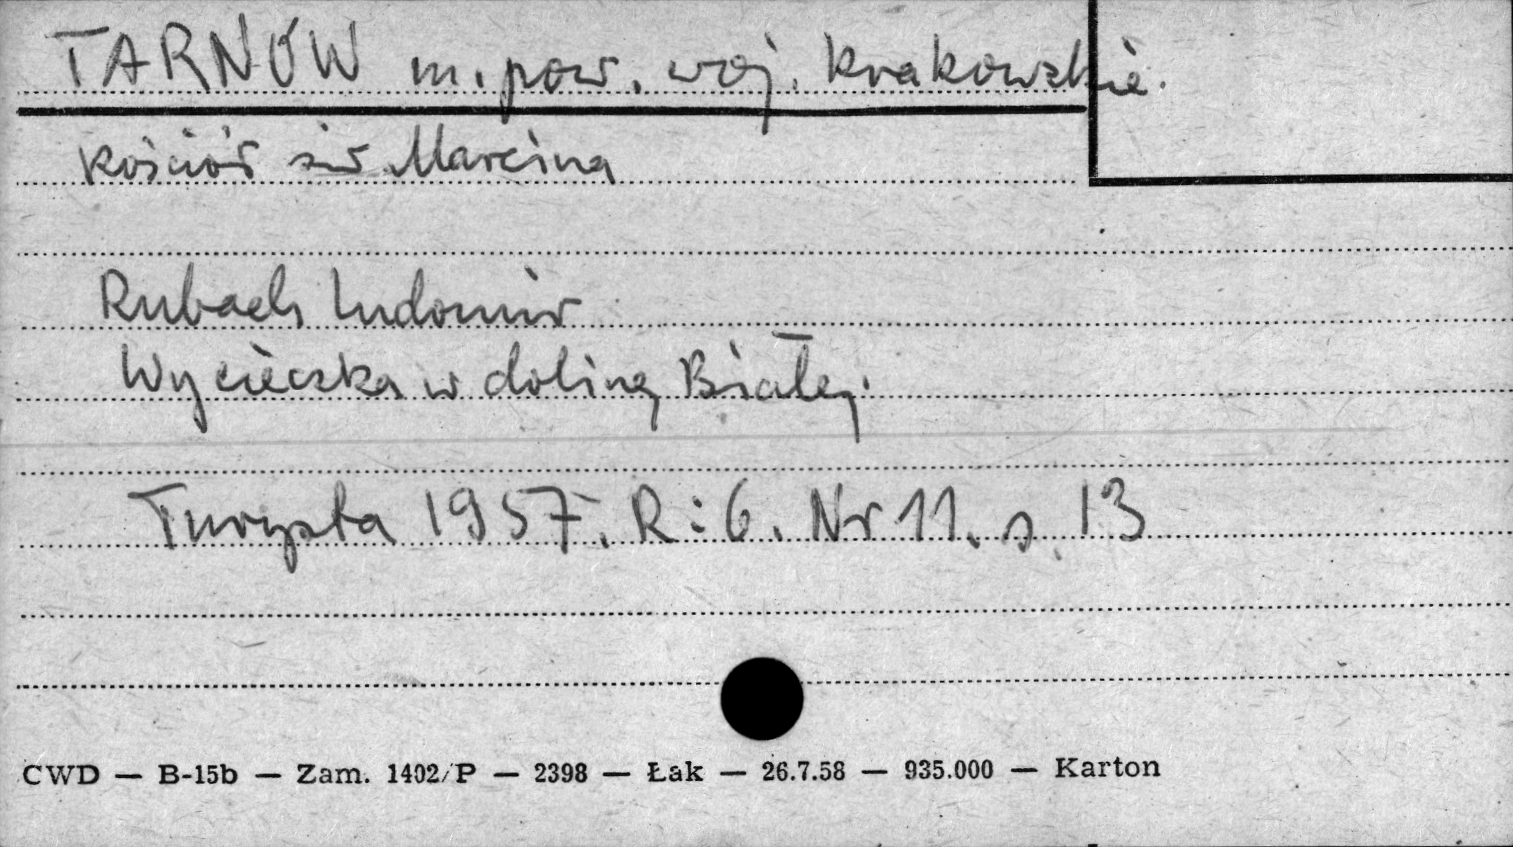 TARNÓW m. pow. woj. krakowskie.
kościół św Marcina
Rubach Ludomir
Wycieczka w dolinę Białej.
Turysta 1957. R: 6. Nr 11. s. 13
CWD — B-15b — Zam. 1402/P — 2398 — Łak — 26.7.58 — 935.000 — Karton